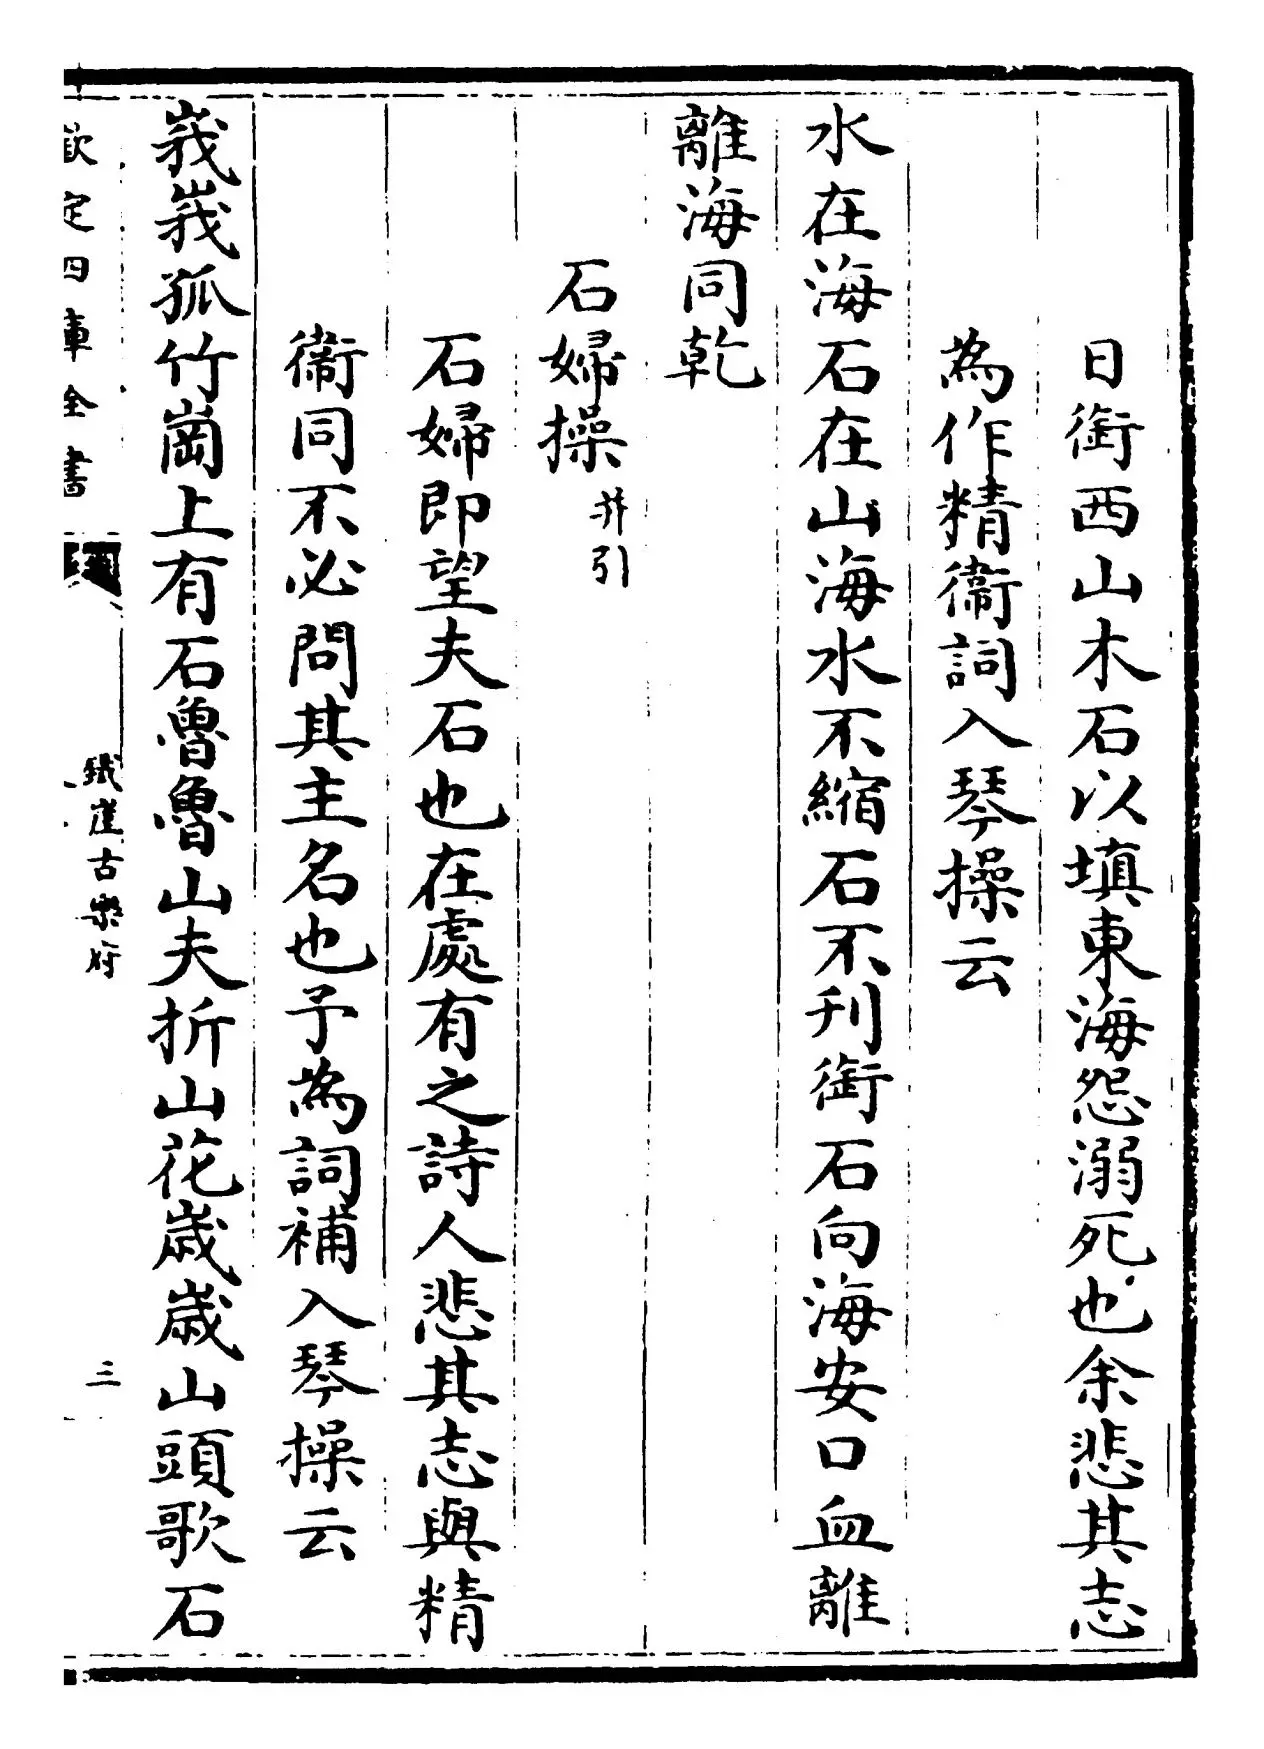 日銜西山木石以填東海怨溺死也余悲其志
為作精衞詞入琴操云
水在海石在山海水不縮石不刋銜石向海安口血離
離海同乾
石婦操并引
石婦即望夫石也在處有之詩人悲其志與精
衞同不必問其主名也予為詞補入琴操云
峩峩孤竹崗上有石魯魯山夫折山花歳歳山頭歌石
欽定四庫全書
鐵崖古樂府
三